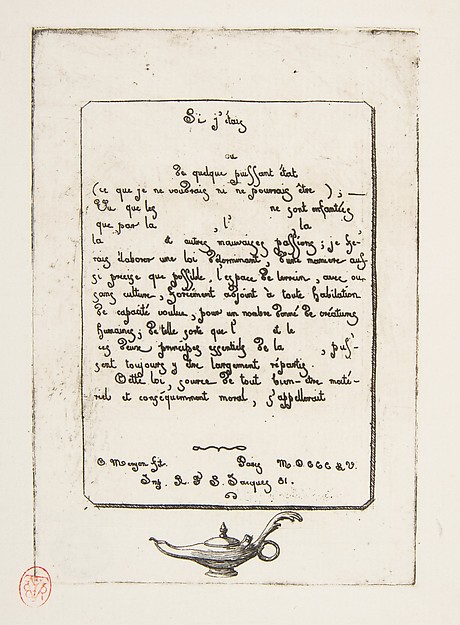 Si j'étais
ou
de quelque puissant état
(ce que je ne voudrais ni ne pourrais être ) ; —
Vu que les ne sont enfantées
que par la , l' la
la et autres mauvaises passions ; je fe-
rais élaborer une loi déterminant, d'une manière aus-
si précise que possible, l'espace de terrein, avec ou
sans culture, forcément adjoint à toute habitation
de capacité voulue, pour un nombre donné de créatures
humaines ; de telle sorte que l' et le
ces deux principes essentiels de la , puis-
sent toujours y être largement répartis
Cette loi, source de tout bien-être maté-
riel et conséquemment moral, s'appellerait
C. Meryon fit. Paris
Imp. R. F. S. Jacques 81.